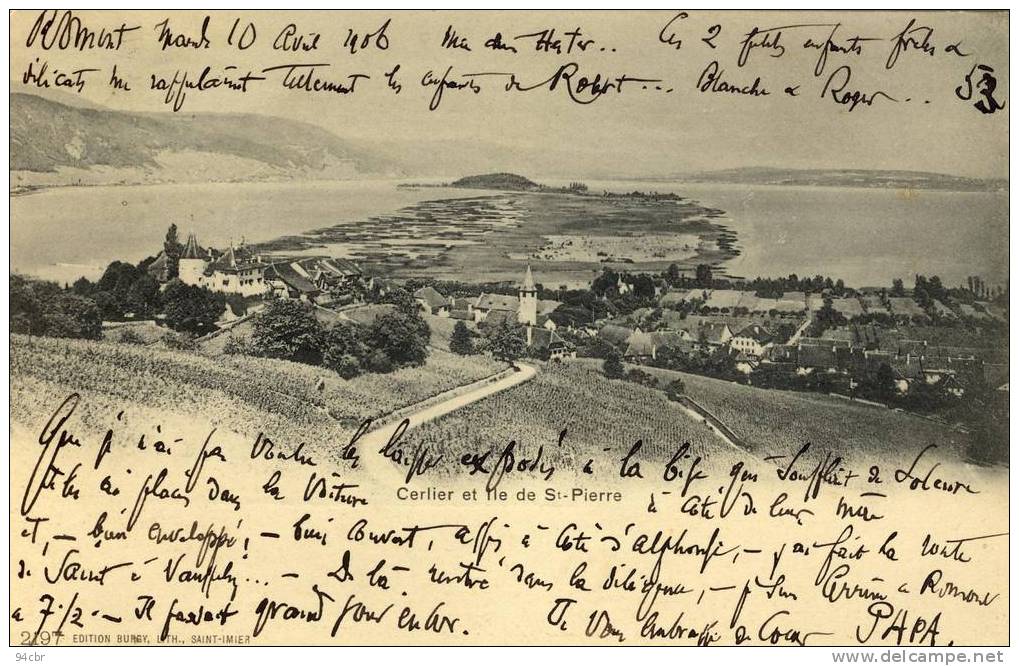 Romont Mardi 10 Avril 1906 Ma chère Hester.. Ces 2 petits enfants frêles &
délicats me rappelaient tellement les enfants de Robert... Blanche & Roger...
Que je n'ai pas voulu les laisser exposés à la bise qui soufflait de Soleure
Petits ai placés dans la voiture à côté de leur mère
et, - bien enveloppé, - bien couvert, assis à côté d'Alphonse, - j'ai fait la route
de Saint à Vauffelin... - De là rentré dans la diligence, - pour arriver à Romont
à 7 1/2. - Il faisait grand jour encor.
Je vous embrasse de coeur PAPA.
Cerlier et Ile de St-Pierre
2197 EDITION BURGY, LITH., SAINT-IMIER
94cbr
http://www.delcampe.net